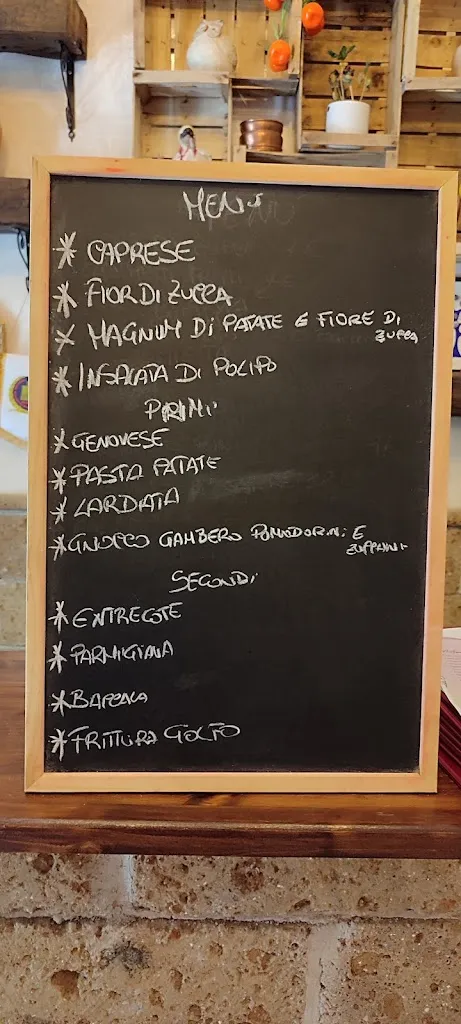 MENÙ
* CAPRESE
* FIOR DI ZUCCA
* MAGNUM Di PATATE E FIORE Di
ZUCCA
* INSALATA Di POLIPO
PRIMi
* GENOVESE
* PASTA PATATE
* LARDATA
* GNOCCO GAMBERO POMODORINi E
ZUCCHINI
SECONDi
* ENTRECOTE
* PARMIGIANA
* BACCALA
* FRITTURA GOLFO